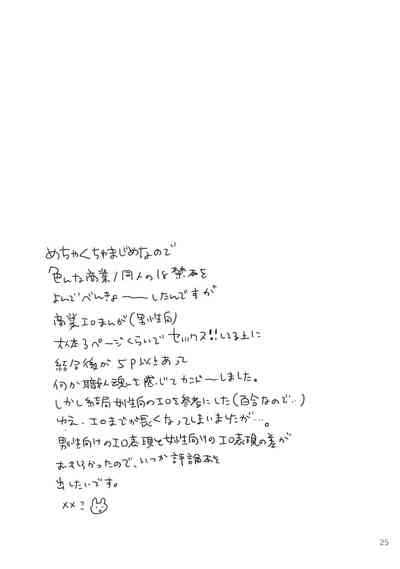 めちゃくちゃまじめなので
色んな商業/同人の18禁本を
よんでべんきょーーしたんですが
商業エロまんが(男性向)
大体3ページくらいでセックス!!してる上に
結合後が5P以上あって
何か職人魂を感じてかんどーしました。
しかし結局女性向のエロを参考にした(百合なので…)
ゆえ、エロまでが長くなってしまいましたが…。
男性向けのエロ表現と女性向けのエロ表現の差が
むずかしかったので、いつか評論本を
出したいです。
××こ
25